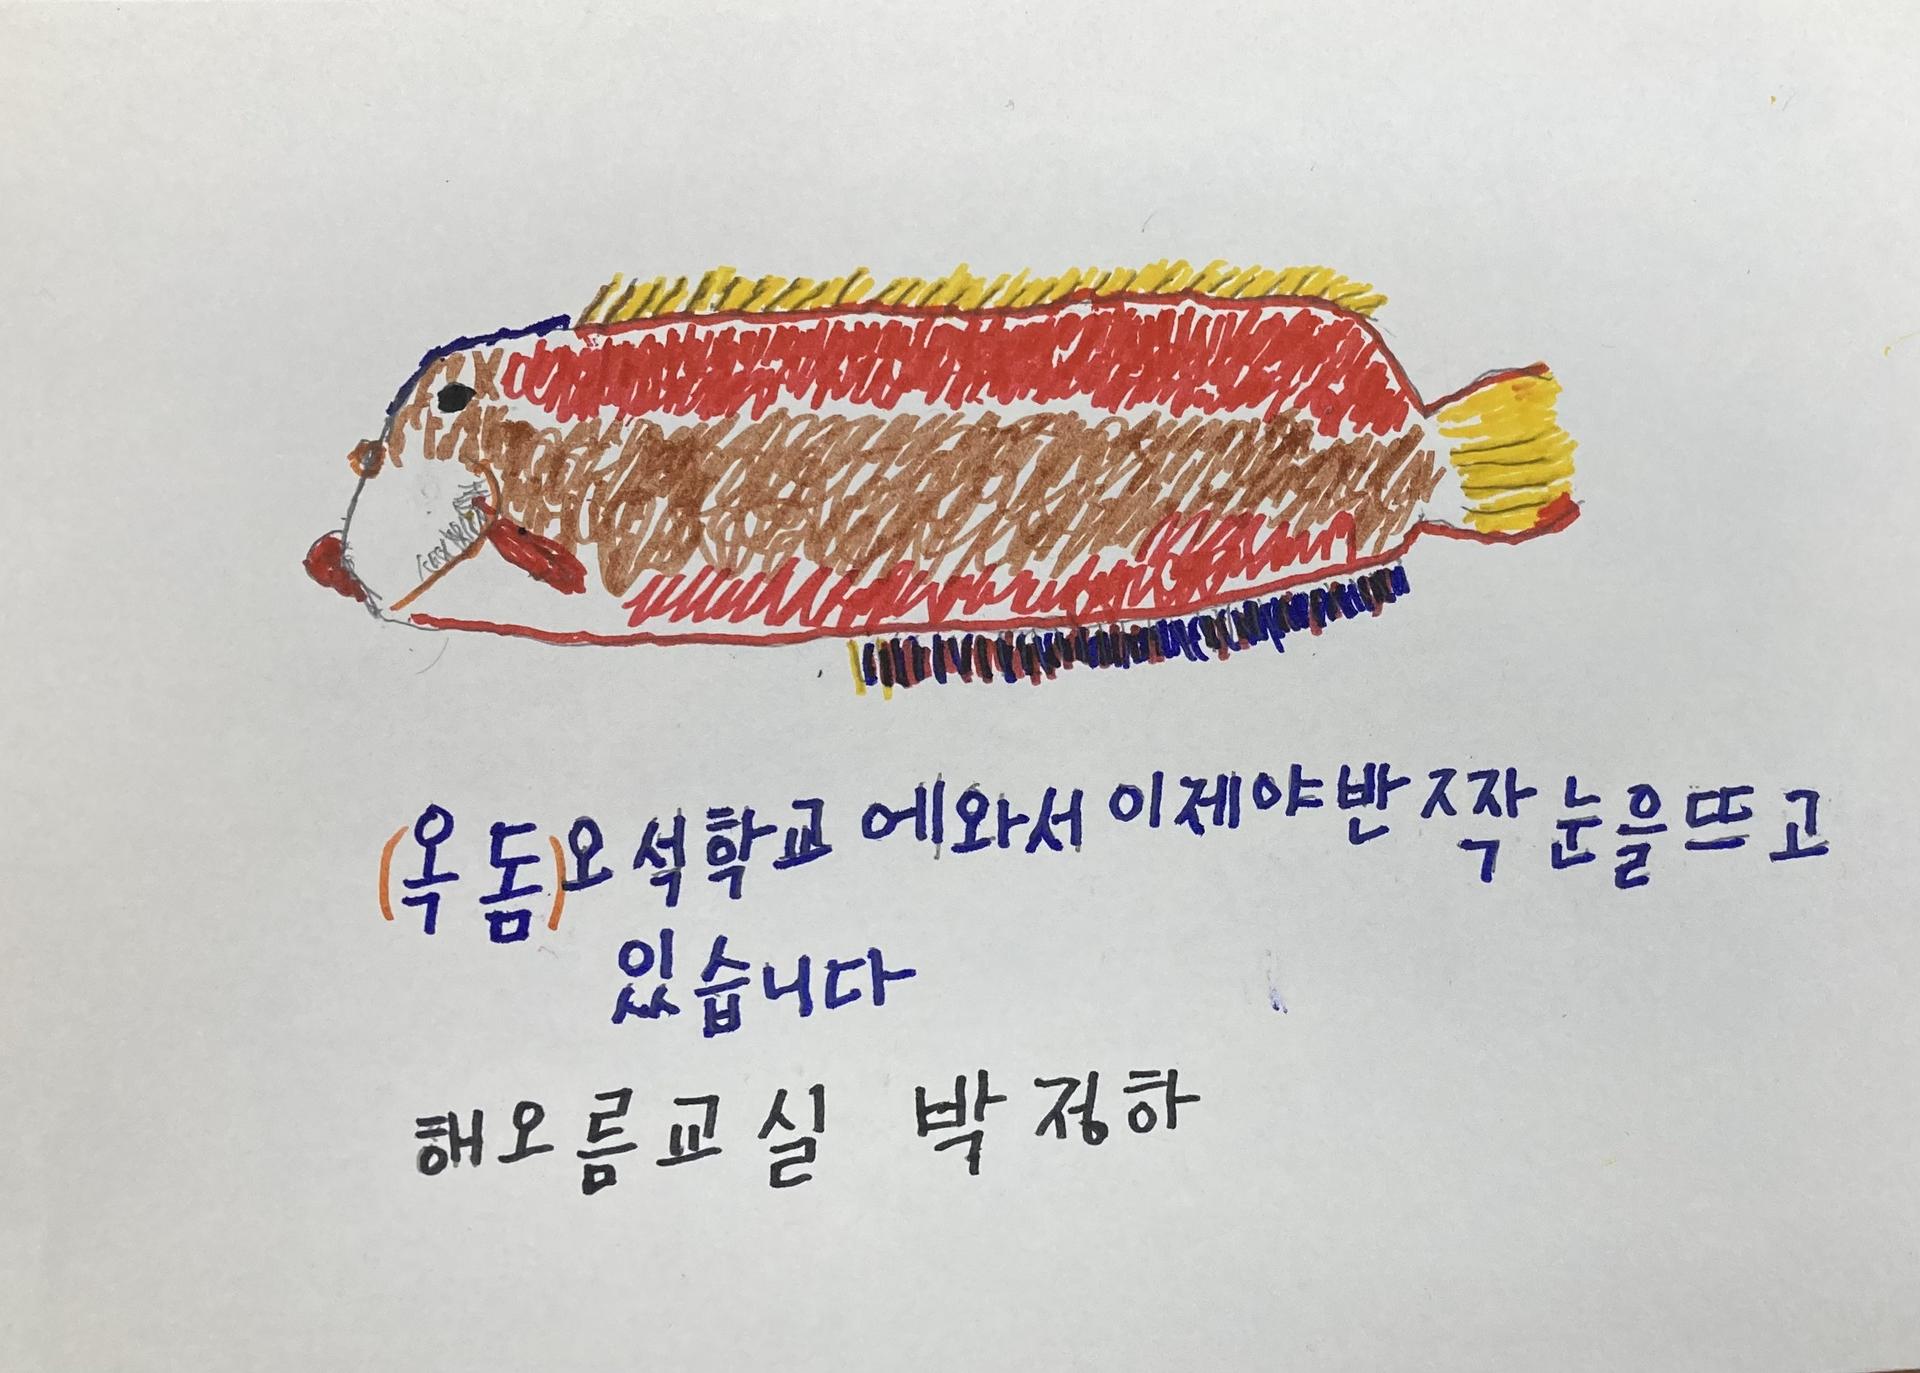 (옥돔)오석학교 에와서 이제야반짝 눈을뜨고
있습니다
해오름교실 박정하